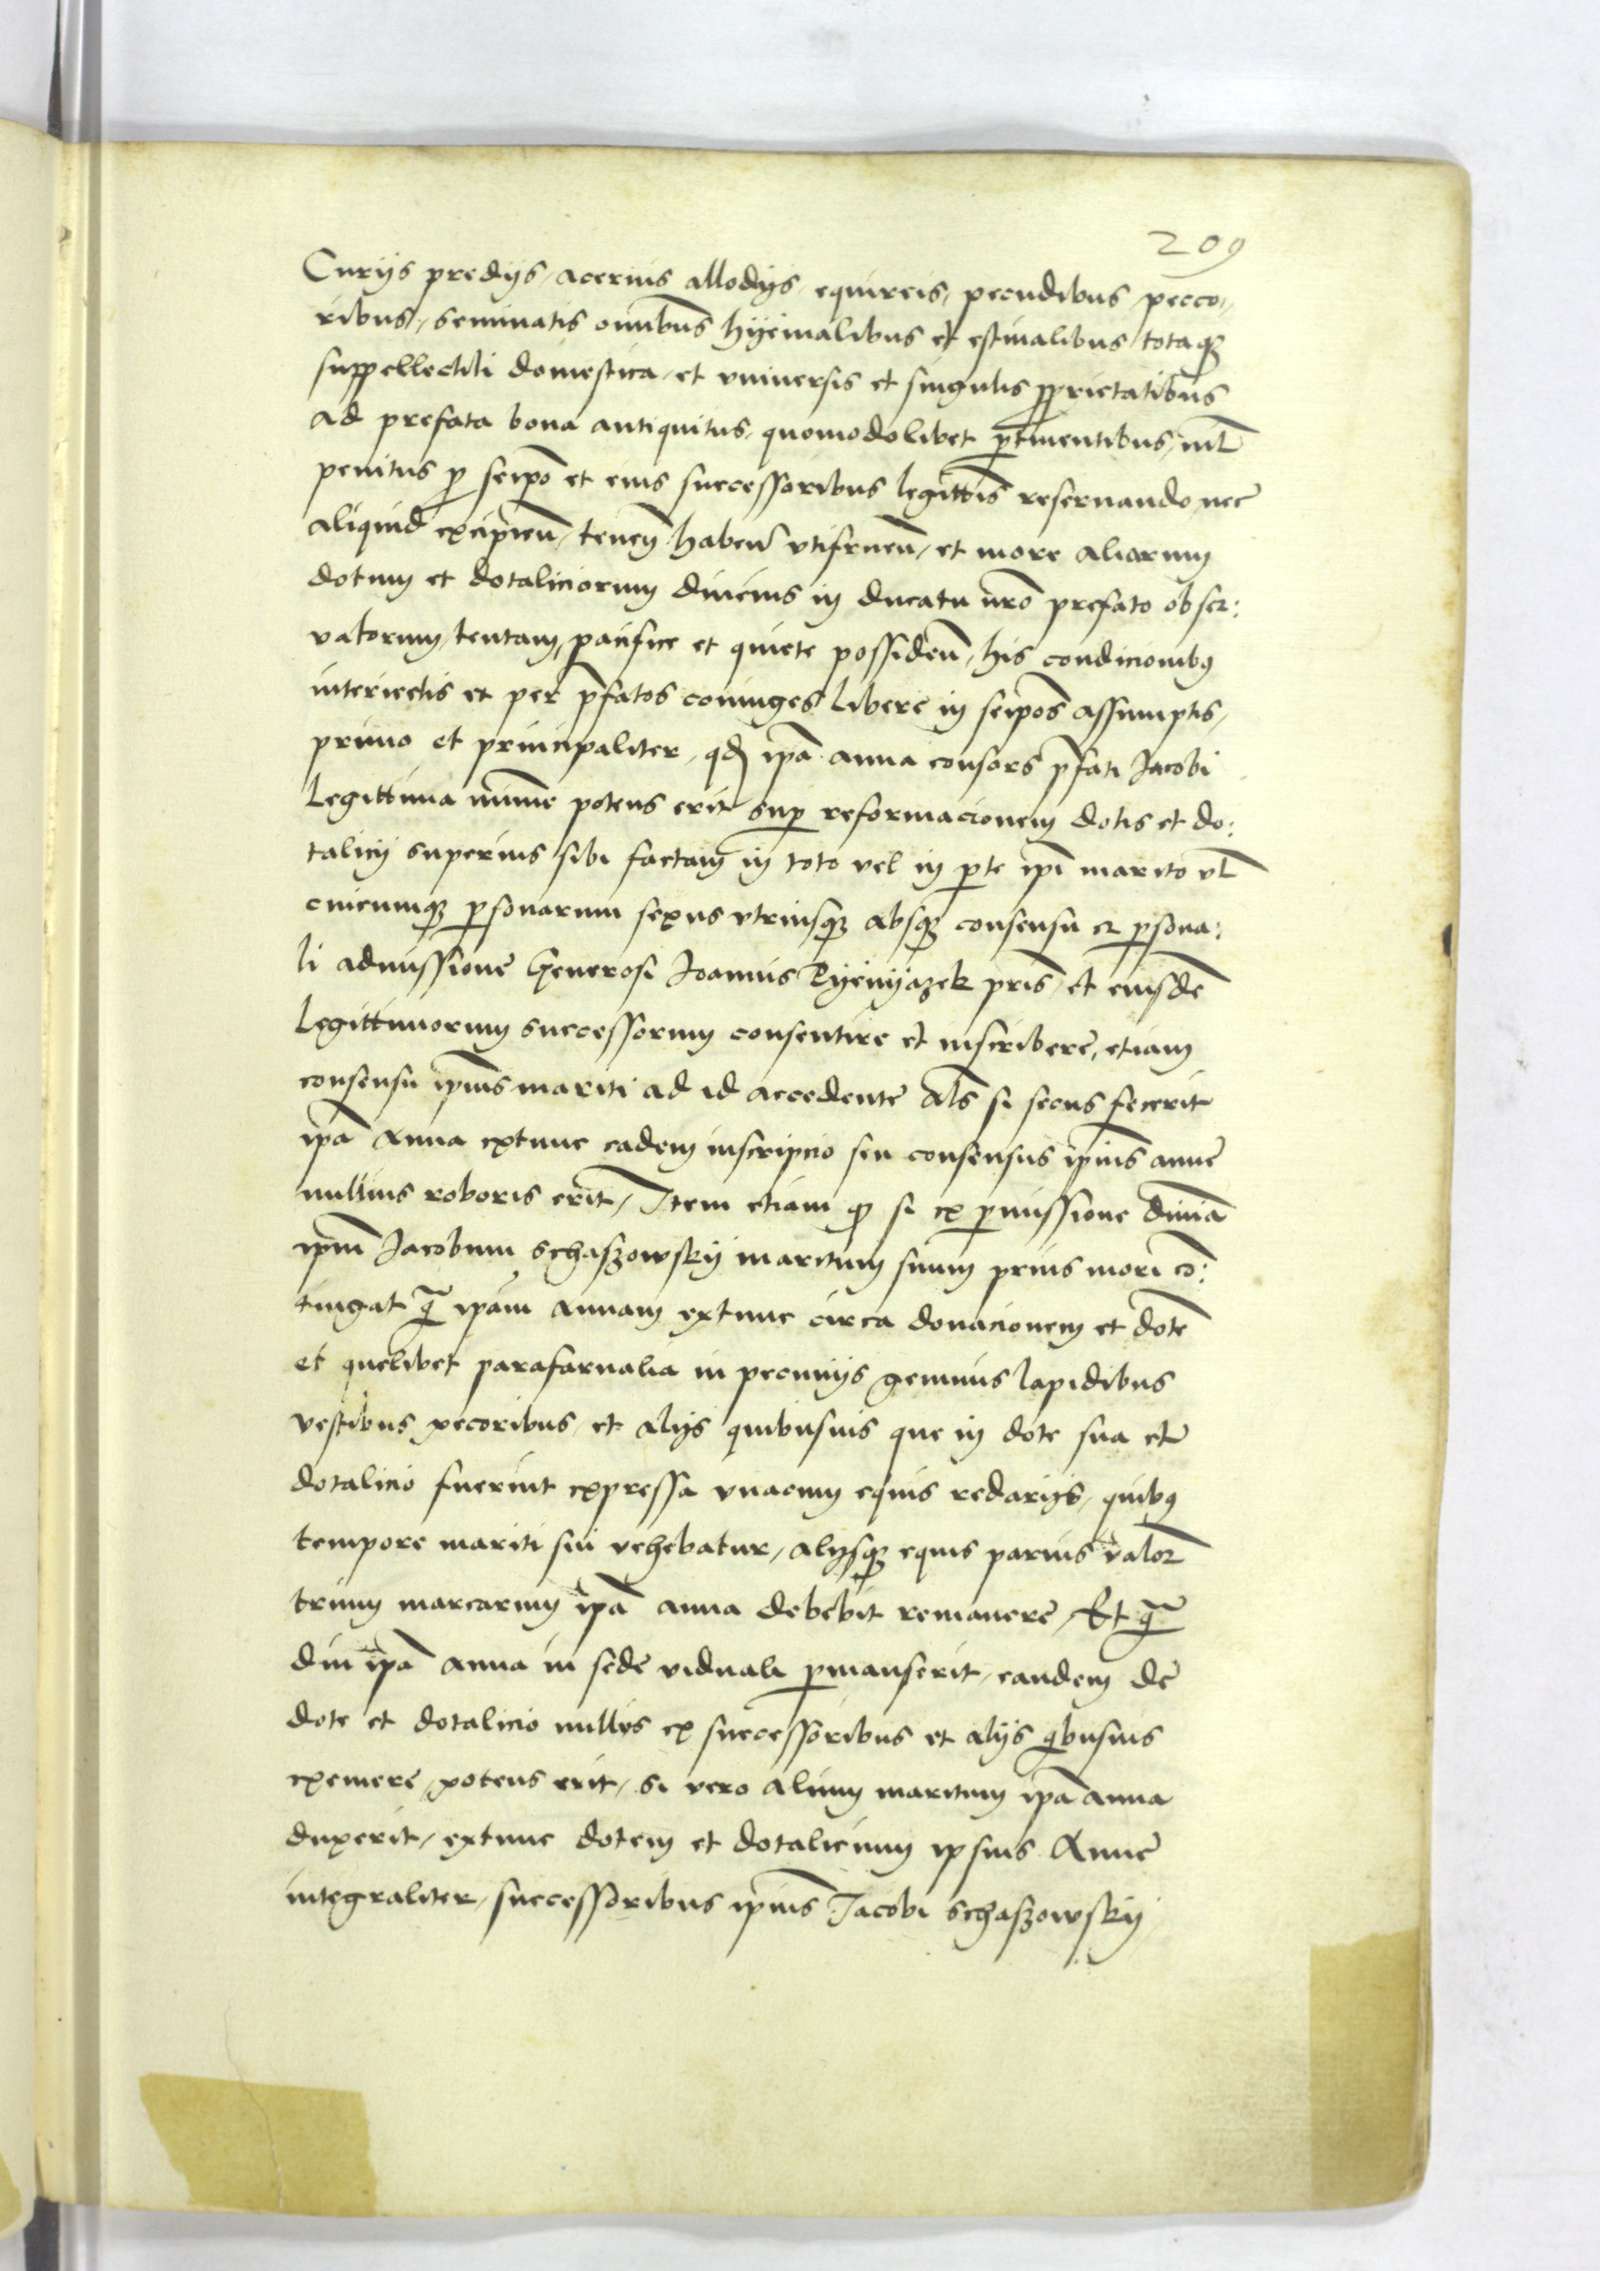 209
Curijs predijs, acerius allodijs, equireis, pecudibus, pecco,,
ribus, seminatis omībus hÿemalibus et estiualibus totaq3
suppellectili domestica, et vniuersis et singulis ꝓprietatibus
ad prefata bona antiquitus, quomodolibet ꝑtinentibus, nil
penitus ꝓ seipō et eius successoribus legittīs reseruando nec
aliquid excipieñ, teneñ habeñ vtifrueñ, et more aliarum
dotum et dotaliciorum diucius in ducatu nrō prefato obser:
vatorum, tentam, pacifice et quiete possideñ, his condicionib9
interiectis et per p̄fatos coniuges libere in seipōs assumptis,
primo et principaliter, qd ipā anna consors p̄fati Jacobi
legittima mīme potens erit suꝑ reformacionem dotis et do:
talicij superius sibi factam in toto vel in ꝑte ipī marito vl̄
cuicumq3 ꝑsonarum sexus vtriusq3 absq3 consensu et ꝑsona:
li admissione Generosi Joannis Pÿenÿazek pr̄is, et eiusdē
legittimorum successorum consentire et inscribere, etiam
consensu ipīus mariti ad id accedente al̄s si secus fecerit
ipā anna extunc eadem inscripcio seu consensus ipīus anne
nullius roboris erit, Item etiam ꝙ si ex ꝑmissione diuīa
ipm̄ Jacobum Schaszowskÿ maritum suum prius mori cō:
tingat q̄ ipām annam extunc circa donacionem et dotē
et quelibet parafarnalia in pecunijs gemmis lapidibus
vestibus pecoribus et alijs quibusuis que in dote sua et
dotalicio fuerint expressa vnacum equis redarijs, quib9
tempore mariti sui vehebatur, alijsq3 equis paruis valor̄
trium marcarum ipā anna debebit remanere, Et q̄
diu ipā anna in sede viduali ꝑmanserit, eandem de
dote et dotalicio nullus ex successoribus et alijs q̇busuis
eximere, potens erit, si vero alium maritum ipā anna
duxerit, extunc dotem et dotalicium ipsius Anne
integraliter, successoribus ipīus Jacobi Schaszowskÿ